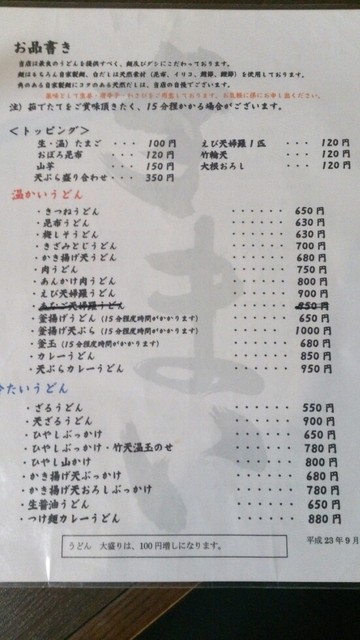 お品書き
当店は最良のうどんを提供すべく、麺及びダシにこだわっております。
麺はもちろん自家製麺、白だしは天然素材（昆布、イリコ、鰹節、鯖節）を使用しております。
角のある自家製麺にコクのある天然だしは、当店の自慢でございます。
注）茹でたてをご賞味頂きたく、15分程かかる場合がございます。
＜トッピング＞
生・温）たまご ・・・ 100円 えび天婦羅1匹 ・・・ 120円
おぼろ昆布 ・・・ 120円 竹輪天 ・・・ 120円
山芋 ・・・ 150円 大根おろし ・・・ 120円
天ぷら盛り合わせ・・・ 350円
温かいうどん
・きつねうどん ・・・・・・ 650円
・昆布うどん ・・・・・・ 630円
・梅しそうどん ・・・・・・ 630円
・きざみとじうどん ・・・・・・ 700円
・かき揚げ天うどん ・・・・・・ 680円
・肉うどん ・・・・・・ 750円
・あんかけ肉うどん ・・・・・・ 800円
・えび天婦羅うどん ・・・・・・ 900円
・あなご天婦羅うどん ・・・・・・ 850円
・釜揚げうどん（15分程度時間がかかります） ・・・・・・ 650円
・釜揚げ天ぷら（15分程度時間がかかります） ・・・・・・ 1000円
・釜玉（15分程度時間がかかります） ・・・・・・ 680円
・カレーうどん ・・・・・・ 850円
・天ぷらカレーうどん ・・・・・・ 950円
冷たいうどん
・ざるうどん ・・・・・・ 550円
・天ざるうどん ・・・・・・ 900円
・ひやしぶっかけ ・・・・・・ 650円
・ひやしぶっかけ・竹天温玉のせ ・・・・・・ 780円
・ひやし山かけ ・・・・・・ 800円
・かき揚げ天ぶっかけ ・・・・・・ 680円
・かき揚げ天おろしぶっかけ ・・・・・・ 780円
・生醤油うどん ・・・・・・ 650円
・つけ麺カレーうどん ・・・・・・ 880円
うどん 大盛りは、100円増しになります。
平成23年9月